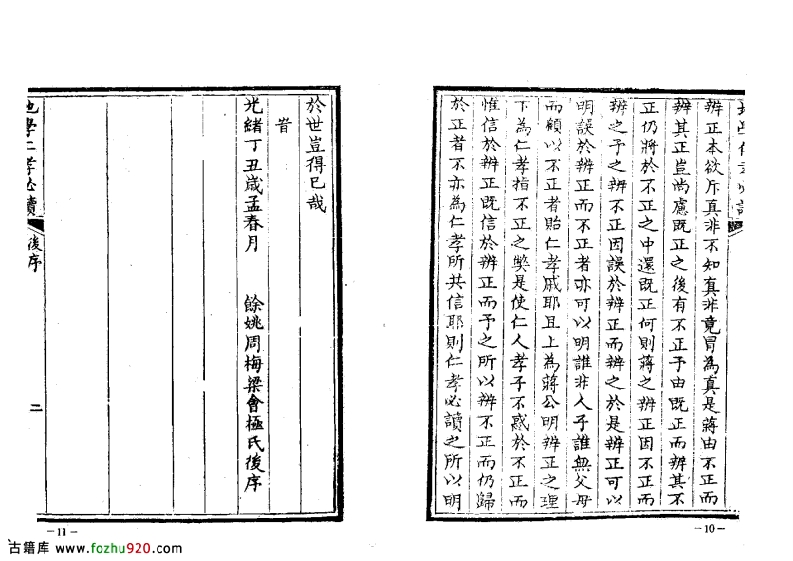 辨正本欲斥真非不知真非竟冒為真是蔣由不正而
辨其正豈尚慮既正之後有不正予由既正而辨其不
正仍將於不正之中還既正何則蔣之辨正因不正而
辨之予之辨不正因誤於辨正而辨之於是辨正可以
明誤於辨正而不正者亦可以明誰非人子誰無父母
而顧以不正者貽仁孝戚耶且上為蔣公明辨正之理
下為仁孝指不正之弊是使仁人孝子不惑於不正而
惟信於辨正既信於辨正而予之所以辨不正而仍歸
於正者不亦為仁孝所共信耶則仁孝必讀之所以明
－10－
於世豈得已哉
旹
光緒丁丑歲孟春月 餘姚周梅梁會極氏後序
地學仁孝必讀 後序 二
－11－
古籍库 www.fozhu920.com